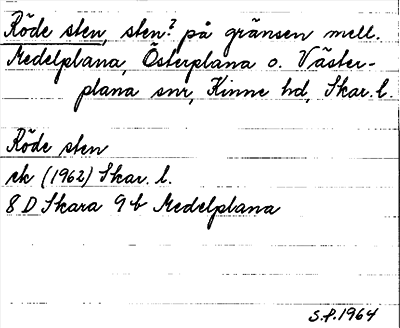 Röde sten, sten? på gränsen mell.
Medelplana, Österplana o. Väster-
plana snr, Kinne hd, Skar. l.
Röde sten
ek (1962) Skar. l.
8 D Skara 9 b Medelplana
S.P. 1964